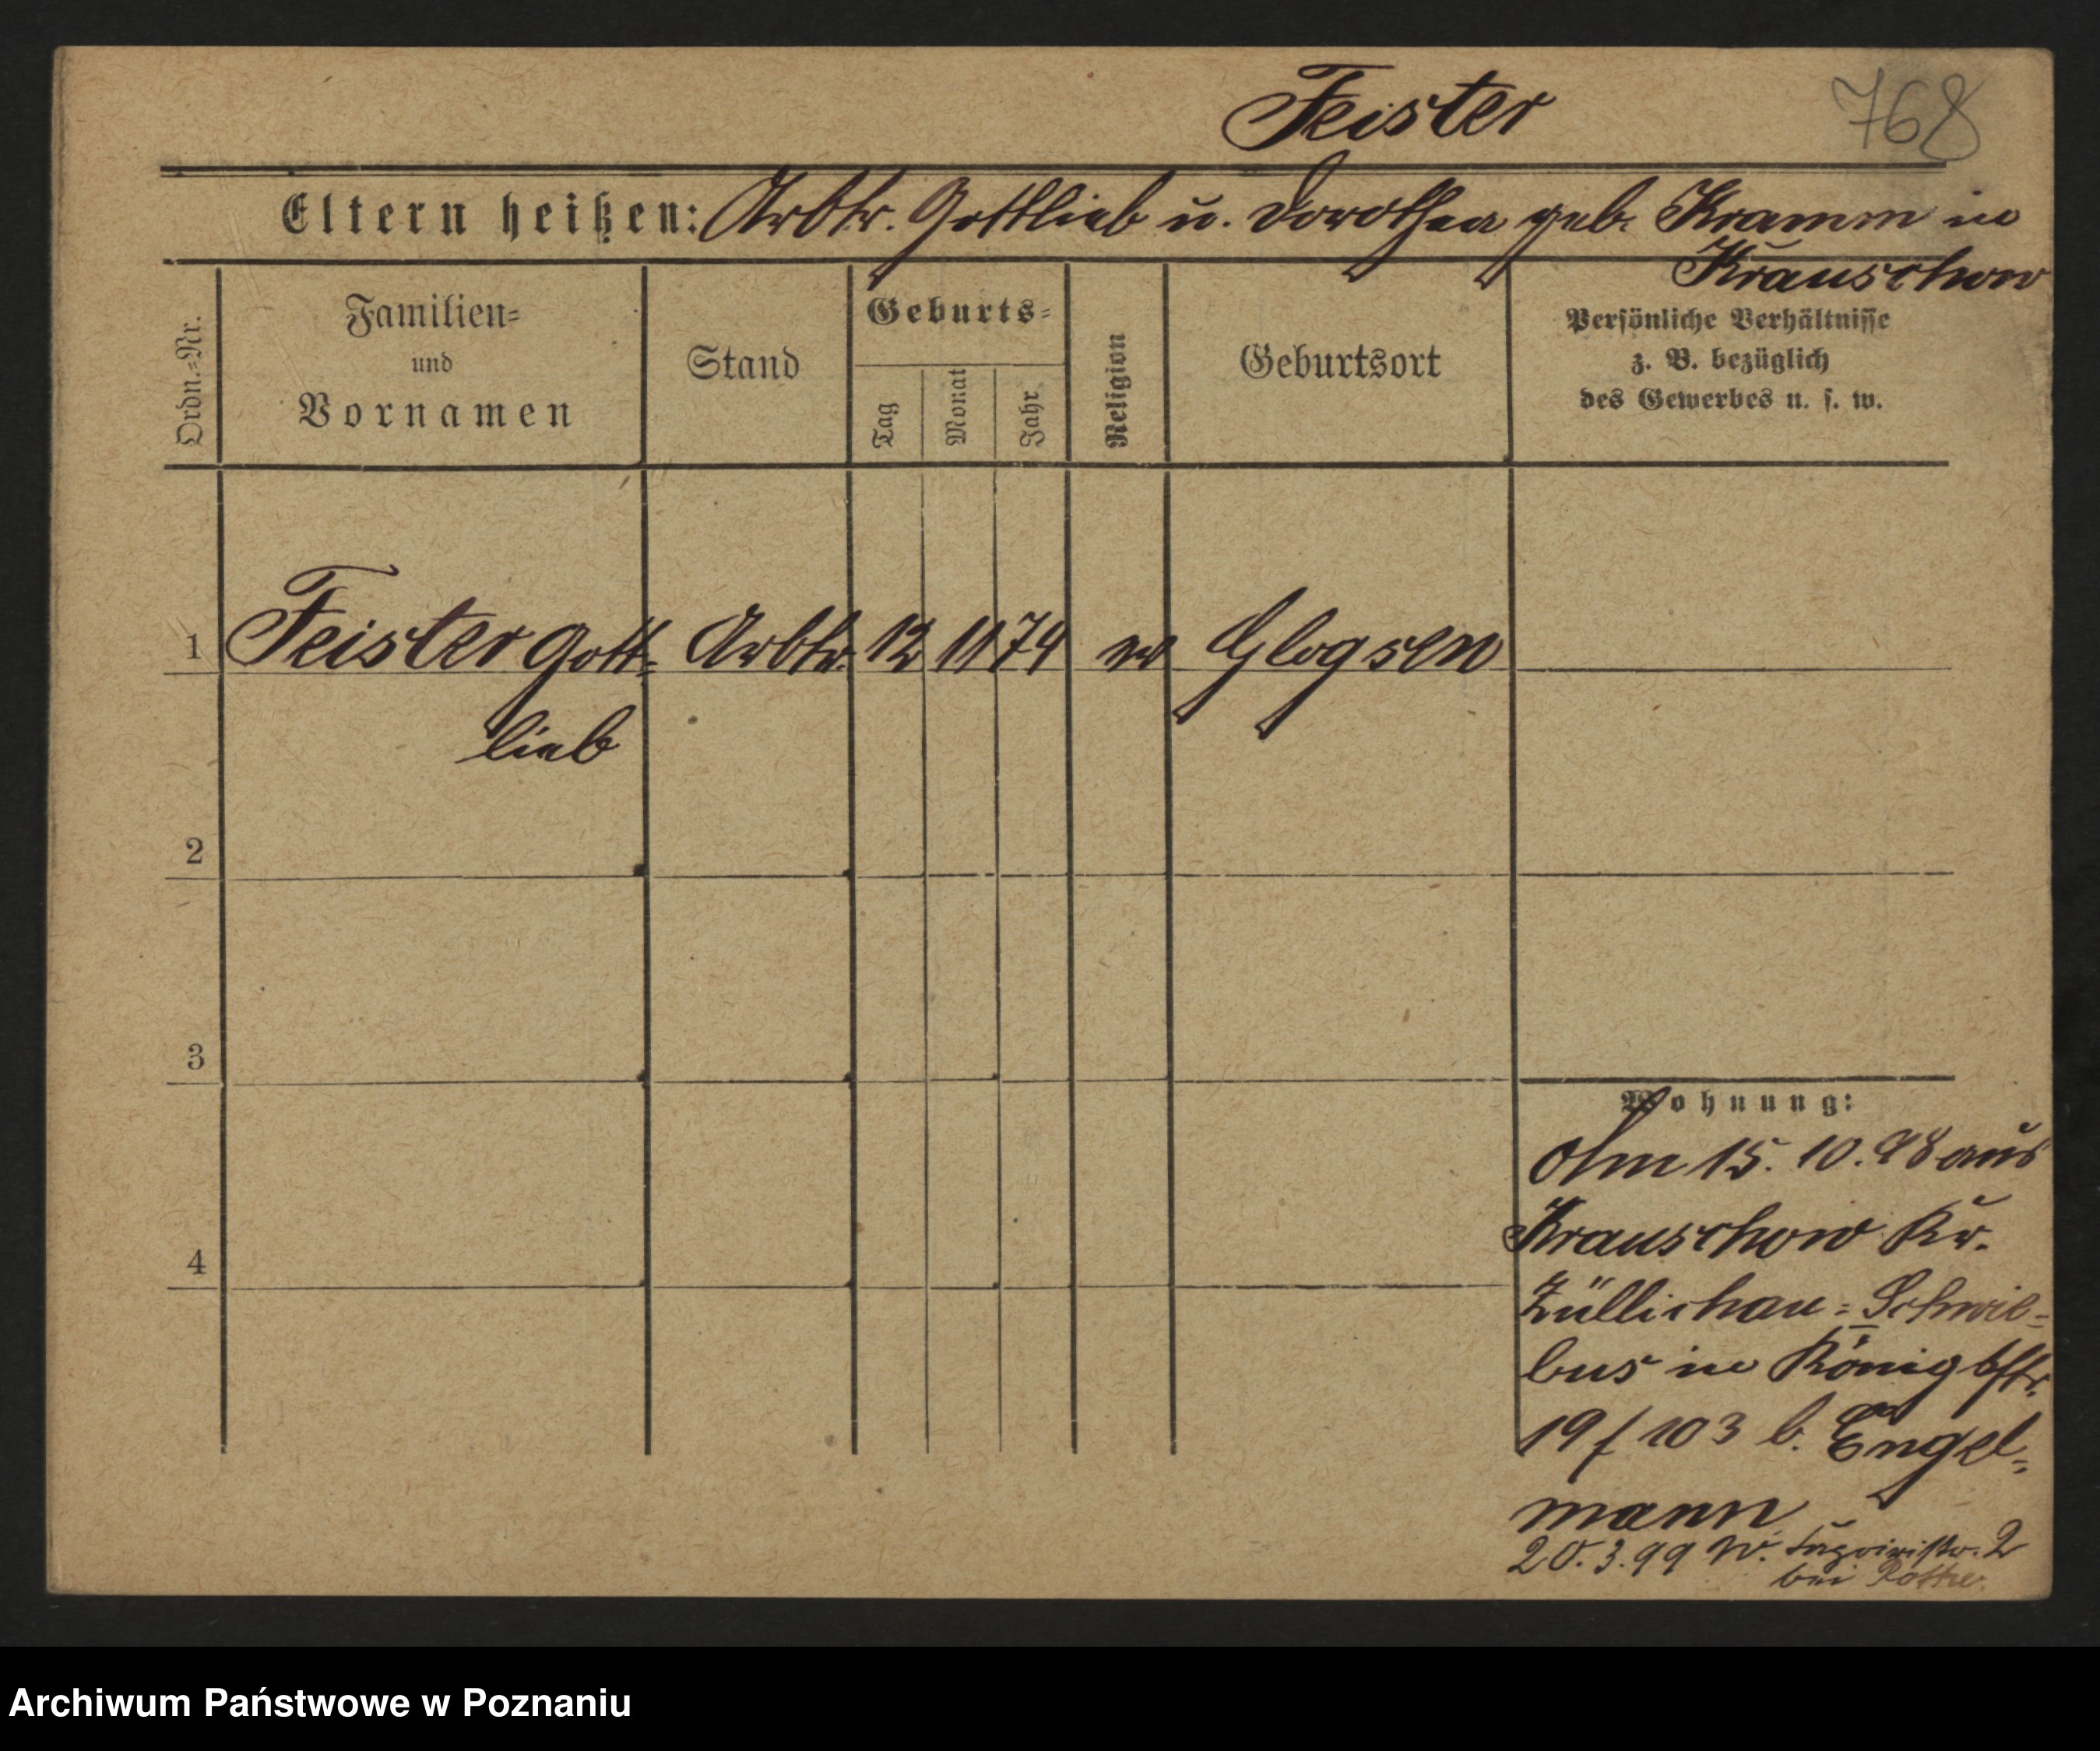 Feister
768
Eltern heißen: Arbtr. Gottlieb u. Dorothea geb. Kramm in
Krauschow
Ordn.-Nr.
Familien-
und
Vornamen
Stand
Geburts-
Tag
Monat
Jahr
Religion
Geburtsort
Persönliche Verhältnisse
z. B. bezüglich
des Gewerbes u. s. w.
1 Feister Gott- Arbtr. 12 11 74 ev Glogsen
lieb
2
3
4
Wohnung:
Am 15. 10. 98 aus
Krauschow Kr.
Züllichau-Schwie-
bus in Königstr.
19/103 b. Engel-
mann
20. 3. 99 W. 2
bei
Archiwum Państwowe w Poznaniu